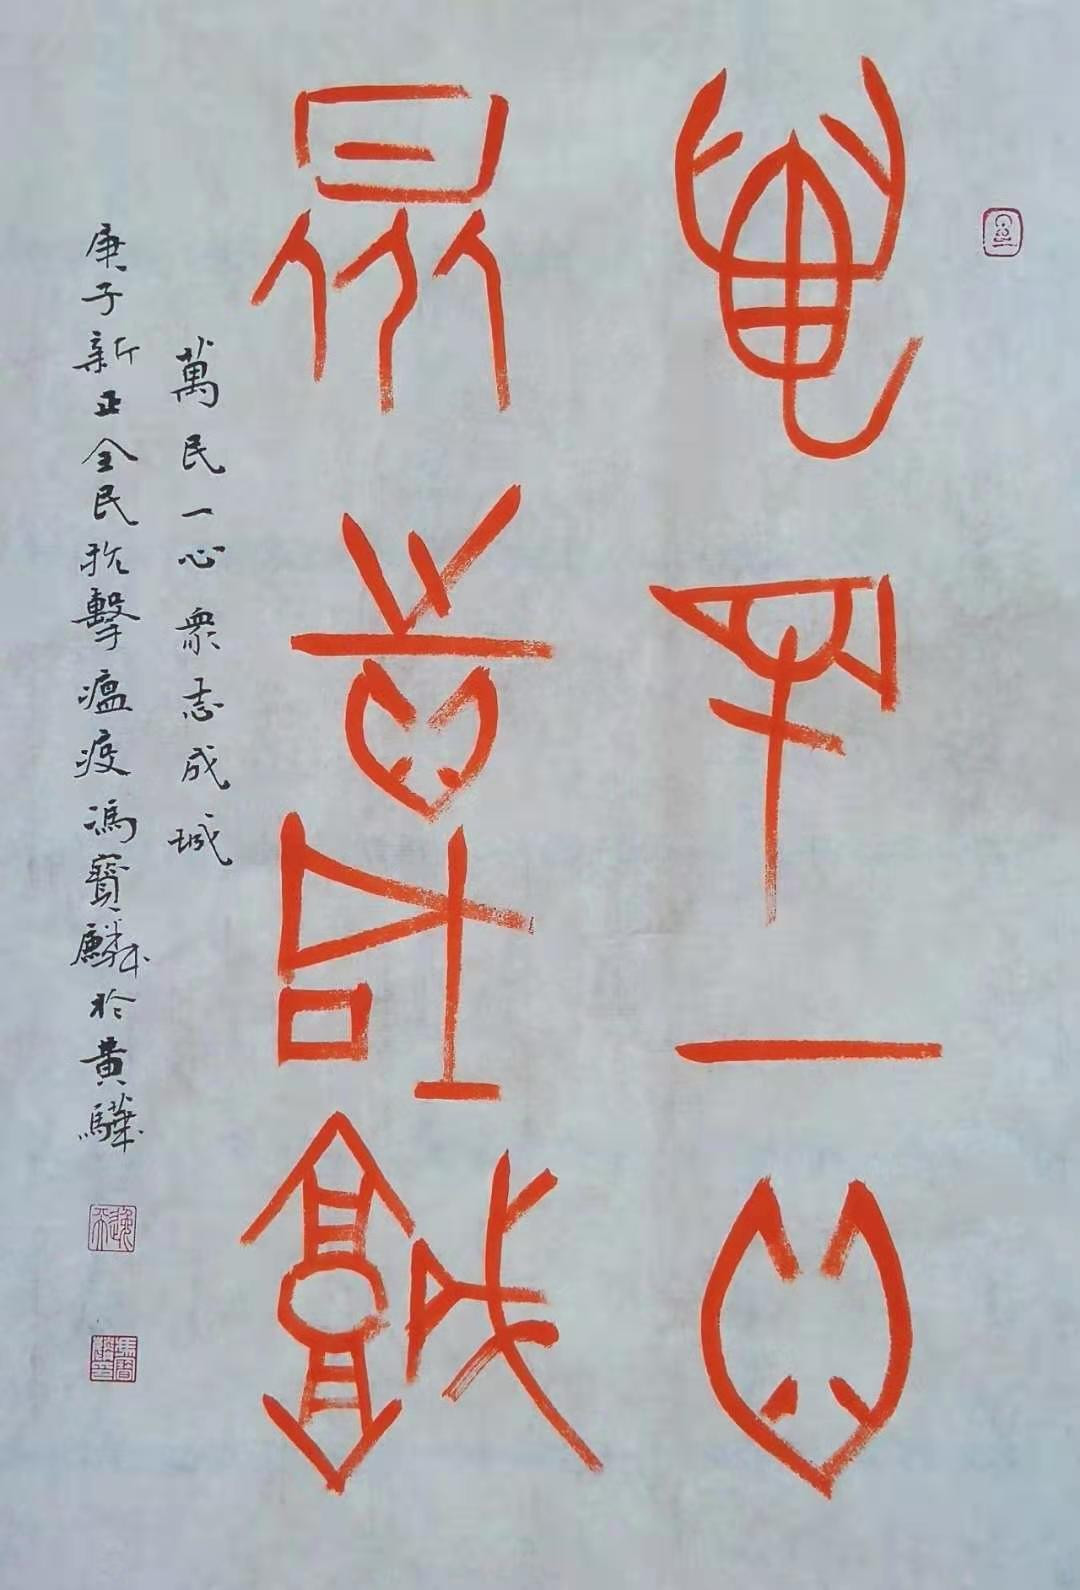 萬民一心
衆志成城
萬民一心衆志成城
庚子新正全民抗擊瘟疫馮寳麟於黄驊